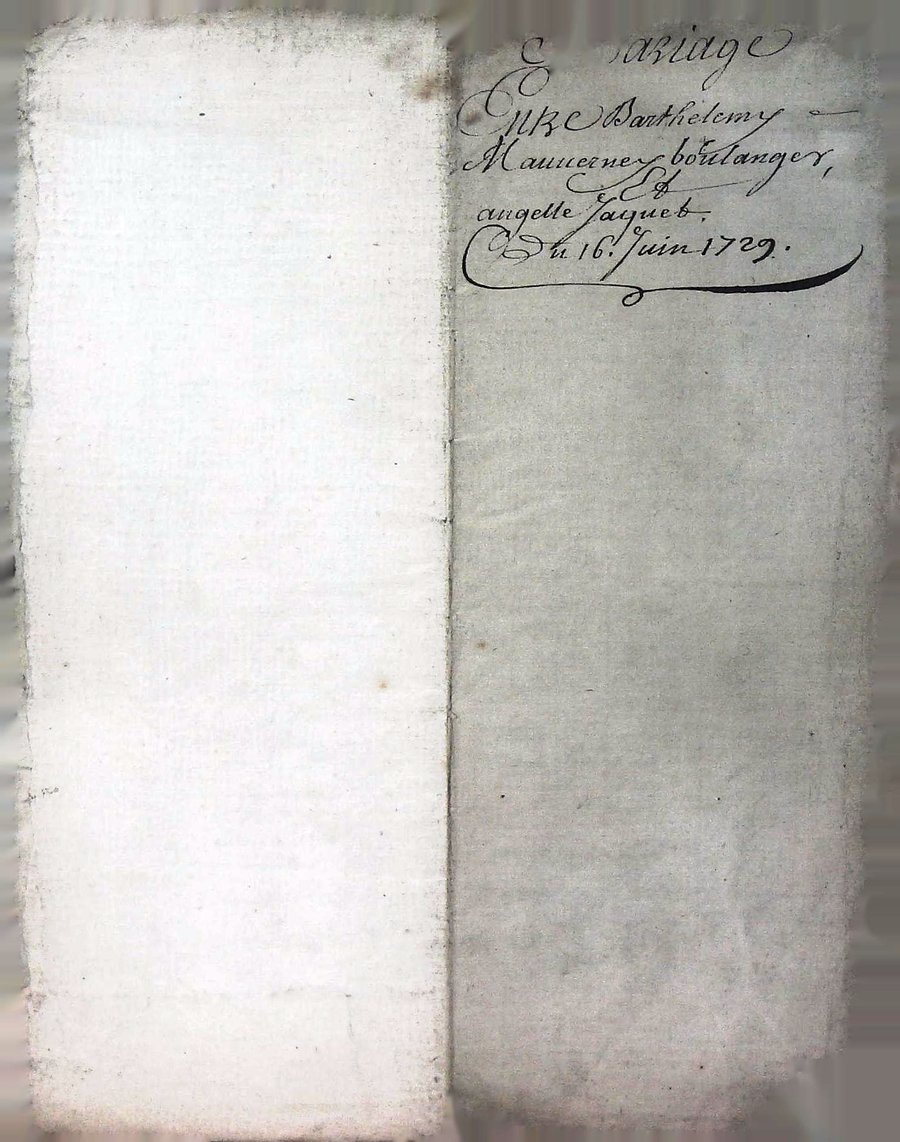 mariage
Entre Barthelemy
Mauverney boulanger,
Et
angelle Jaquet.
Du 16. Juin 1729.